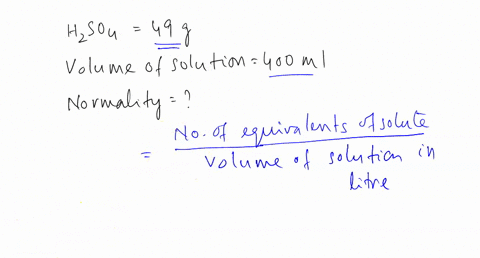 H₂SO₄ = 49 g
Volume of solution = 400 ml
Normality = ?
= No. of equivalents of solute
Volume of solution in
litre